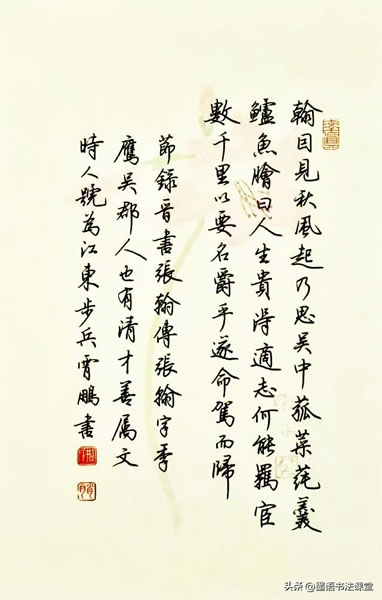 翰因見秋風起乃思吳中菰菜蒓羹
鱸魚膾曰人生貴得適志何能羈宦
數千里以要名爵乎遂命駕而歸
節録晉書張翰傳張翰字季
鷹吳郡人也有清才善属文
時人號為江東步兵霄鵬書
头条 @墨语书法课堂